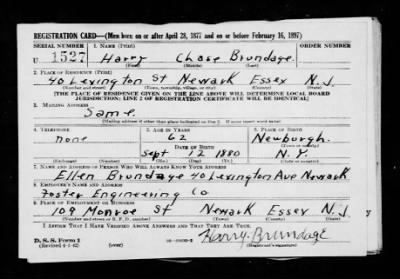 REGISTRATION CARD—(Men born on or after April 28, 1877 and on or before February 16, 1897)
SERIAL NUMBER 1. NAME (Print) ORDER NUMBER
U 1527 Harry Chase Brundage
(First) (Middle) (Last)
2. PLACE OF RESIDENCE (Print)
40 Lexington St Newark Essex N.J.
(Number and street) (Town, township, village, or city) (County) (State)
[THE PLACE OF RESIDENCE GIVEN ON THE LINE ABOVE WILL DETERMINE LOCAL BOARD
JURISDICTION; LINE 2 OF REGISTRATION CERTIFICATE WILL BE IDENTICAL]
3. MAILING ADDRESS
Same.
[Mailing address if other than place indicated on line 2. If same insert word same]
4. TELEPHONE 5. AGE IN YEARS 6. PLACE OF BIRTH
none 62 Newburgh.
DATE OF BIRTH (Town or county)
Sept 12 1880 N.Y.
(Exchange) (Number) (Mo.) (Day) (Yr.) (State or country)
7. NAME AND ADDRESS OF PERSON WHO WILL ALWAYS KNOW YOUR ADDRESS
Ellen Brundage 40 Lexington Ave Newark
8. EMPLOYER'S NAME AND ADDRESS
Foster Engineering Co
9. PLACE OF EMPLOYMENT OR BUSINESS
109 Monroe St Newark Essex N.J
(Number and street or R. F. D. number) (Town) (County) (State)
I AFFIRM THAT I HAVE VERIFIED ABOVE ANSWERS AND THAT THEY ARE TRUE.
D. S. S. Form 1 Harry. Brundage
(Revised 4-1-42) (over) (Registrant's signature)